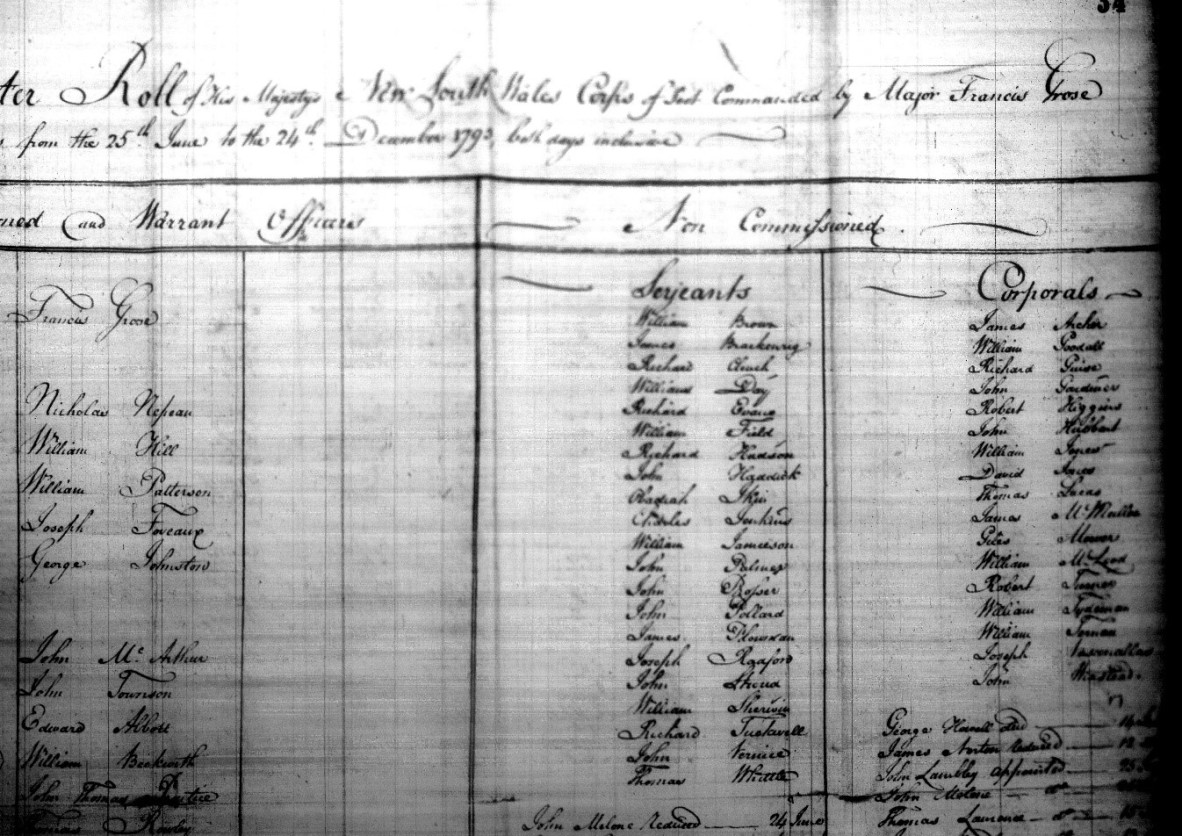 34
ter Roll of His Majestys New South Wales Corps of Foot Commanded by Major Francis Grose
from the 25th June to the 24th December 1793, both days inclusive
and Warrant Officers
Non Commissioned
Francis Grose
Nicholas Nepean
William Hill
William Patterson
Joseph Foveaux
George Johnston
John Mc Arthur
John Townson
Edward Abbott
William Beckwith
John Thomas
Thomas Rowley
Serjeants
William Brown
James Brackenrig
Richard
William Day
Richard Evans
William Field
Richard Hudson
John Haddick
Obadiah Ikin
Charles Jenkins
William Jamieson
John Palmer
John Rosser
John Pollard
James Plowman
Joseph Radford
John
William Sherwin
Richard Tuckwell
John
Thomas Whittle
John Melone Reduced 24 June
Corporals
James Archer
William Goodall
Richard Guise
John Gardiner
Robert Higgins
John Hibbart
William Jones
David Jones
Thomas Lucas
James McMullen
Giles Mower
William McLeod
Robert Turner
William Tydeman
William
Joseph
John Winstead
George died
James Norton Reduced
John Lambley appointed
John Melone do
Thomas Laurence do